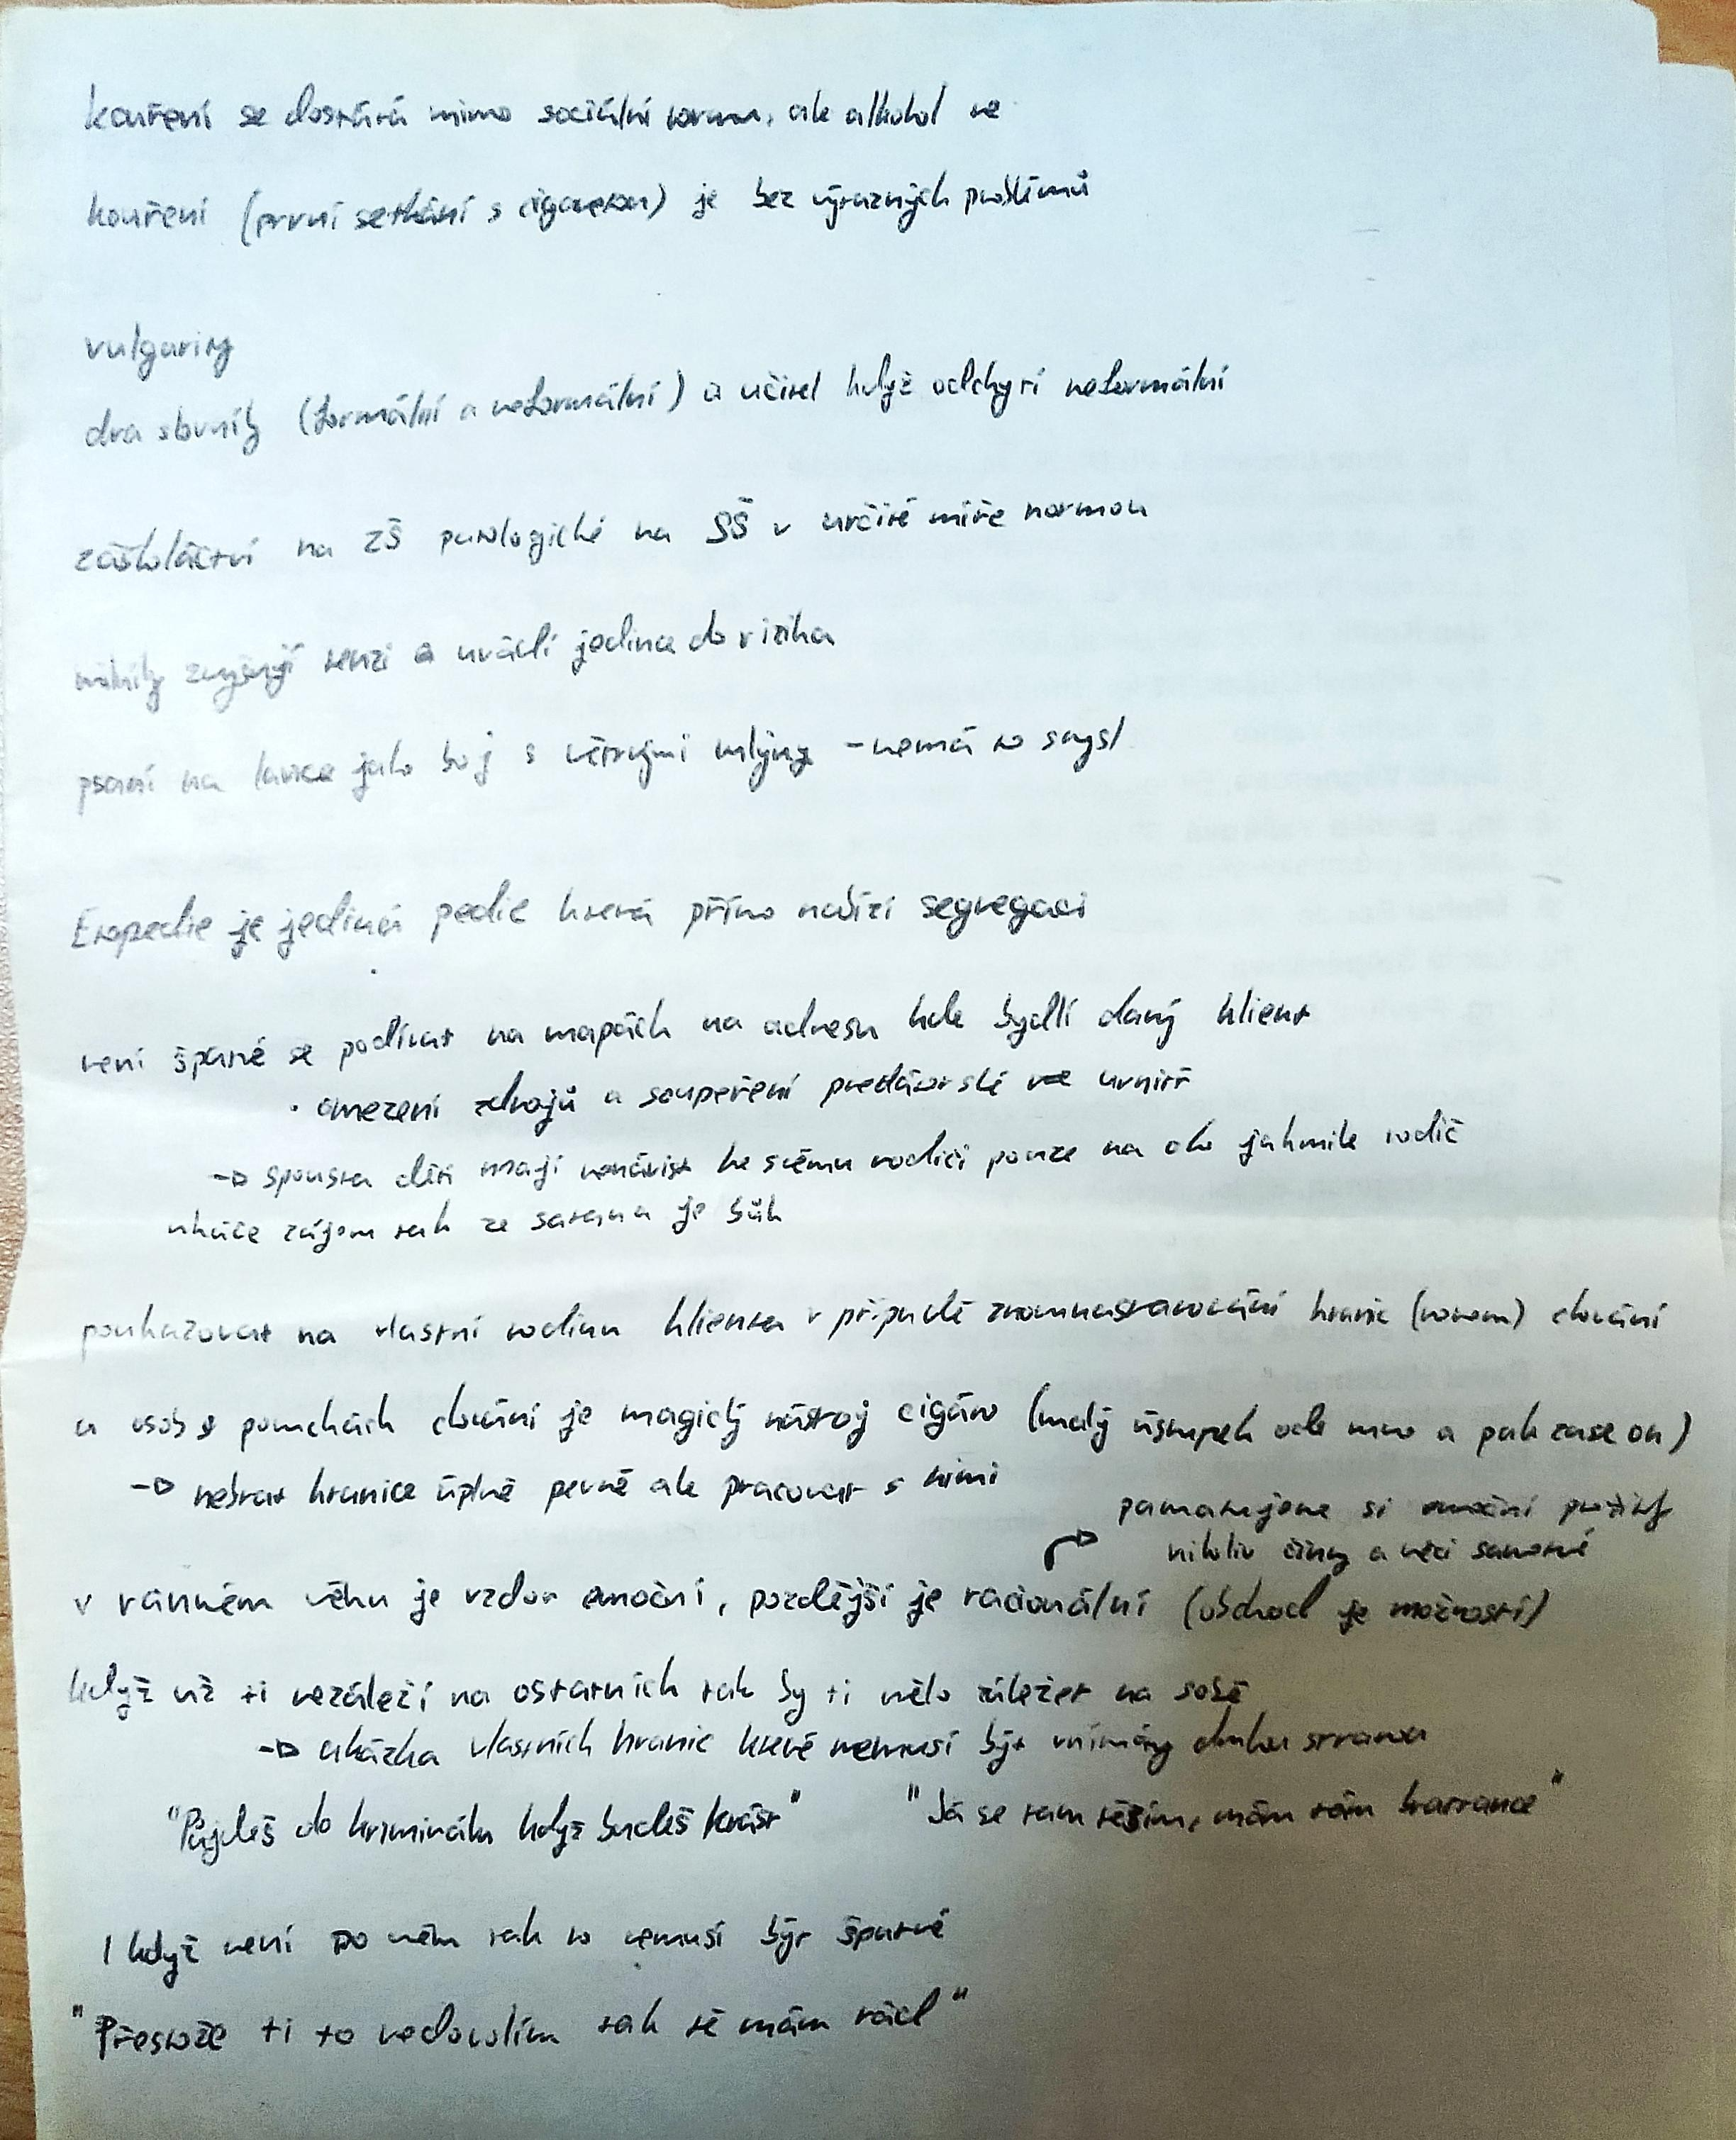 kouření se dostává mimo sociální normu, ale alkohol ne
kouření (první setkání s cigaretou) je bez výrazných problémů
vulgarity
dva slovníky (formální a neformální) a učitel když odchytí neformální
záškoláctví na ZŠ patologické na SŠ v určité míře normou
zvyšují tenzi a uvádí jedince do rizika
psaní na lavice jako boj s větrnými mlýny - nemá to smysl
Etopedie je jediná pedie která přímo nabízí segregaci
není špatné se podívat na mapách na adresu kde bydlí daný klient
• omezení zdrojů a soupeření predátorské uvnitř
→ spousta dětí mají nenávist ke svému rodiči pouze na oko jakmile rodič
ukáže zájem tak ze satana je bůh
poukazovat na vlastní rodinu klienta v případě znovunastavování hranic (norem) chování
u osob s poruchách chování je magický nástroj cigáro (malý ústupek ode mne a pak zase on)
→ nebrat hranice úplně pevně ale pracovat s nimi
pamatujeme si emoční prožitky
nikoliv činy a věci samotné
v ranném věku je vzdor emoční, pozdější je racionální (obchod je možností)
když už ti nezáleží na ostatních tak by ti mělo záležet na sobě
→ ukázka vlastních hranic které nemusí být vnímány druhou stranou
"Půjdeš do kriminálu když budeš krást" "Já se tam těším, mám tám kamaráde"
I když není po mém tak to nemusí být špatné
"Přestože ti to nedovolím tak tě mám rád"